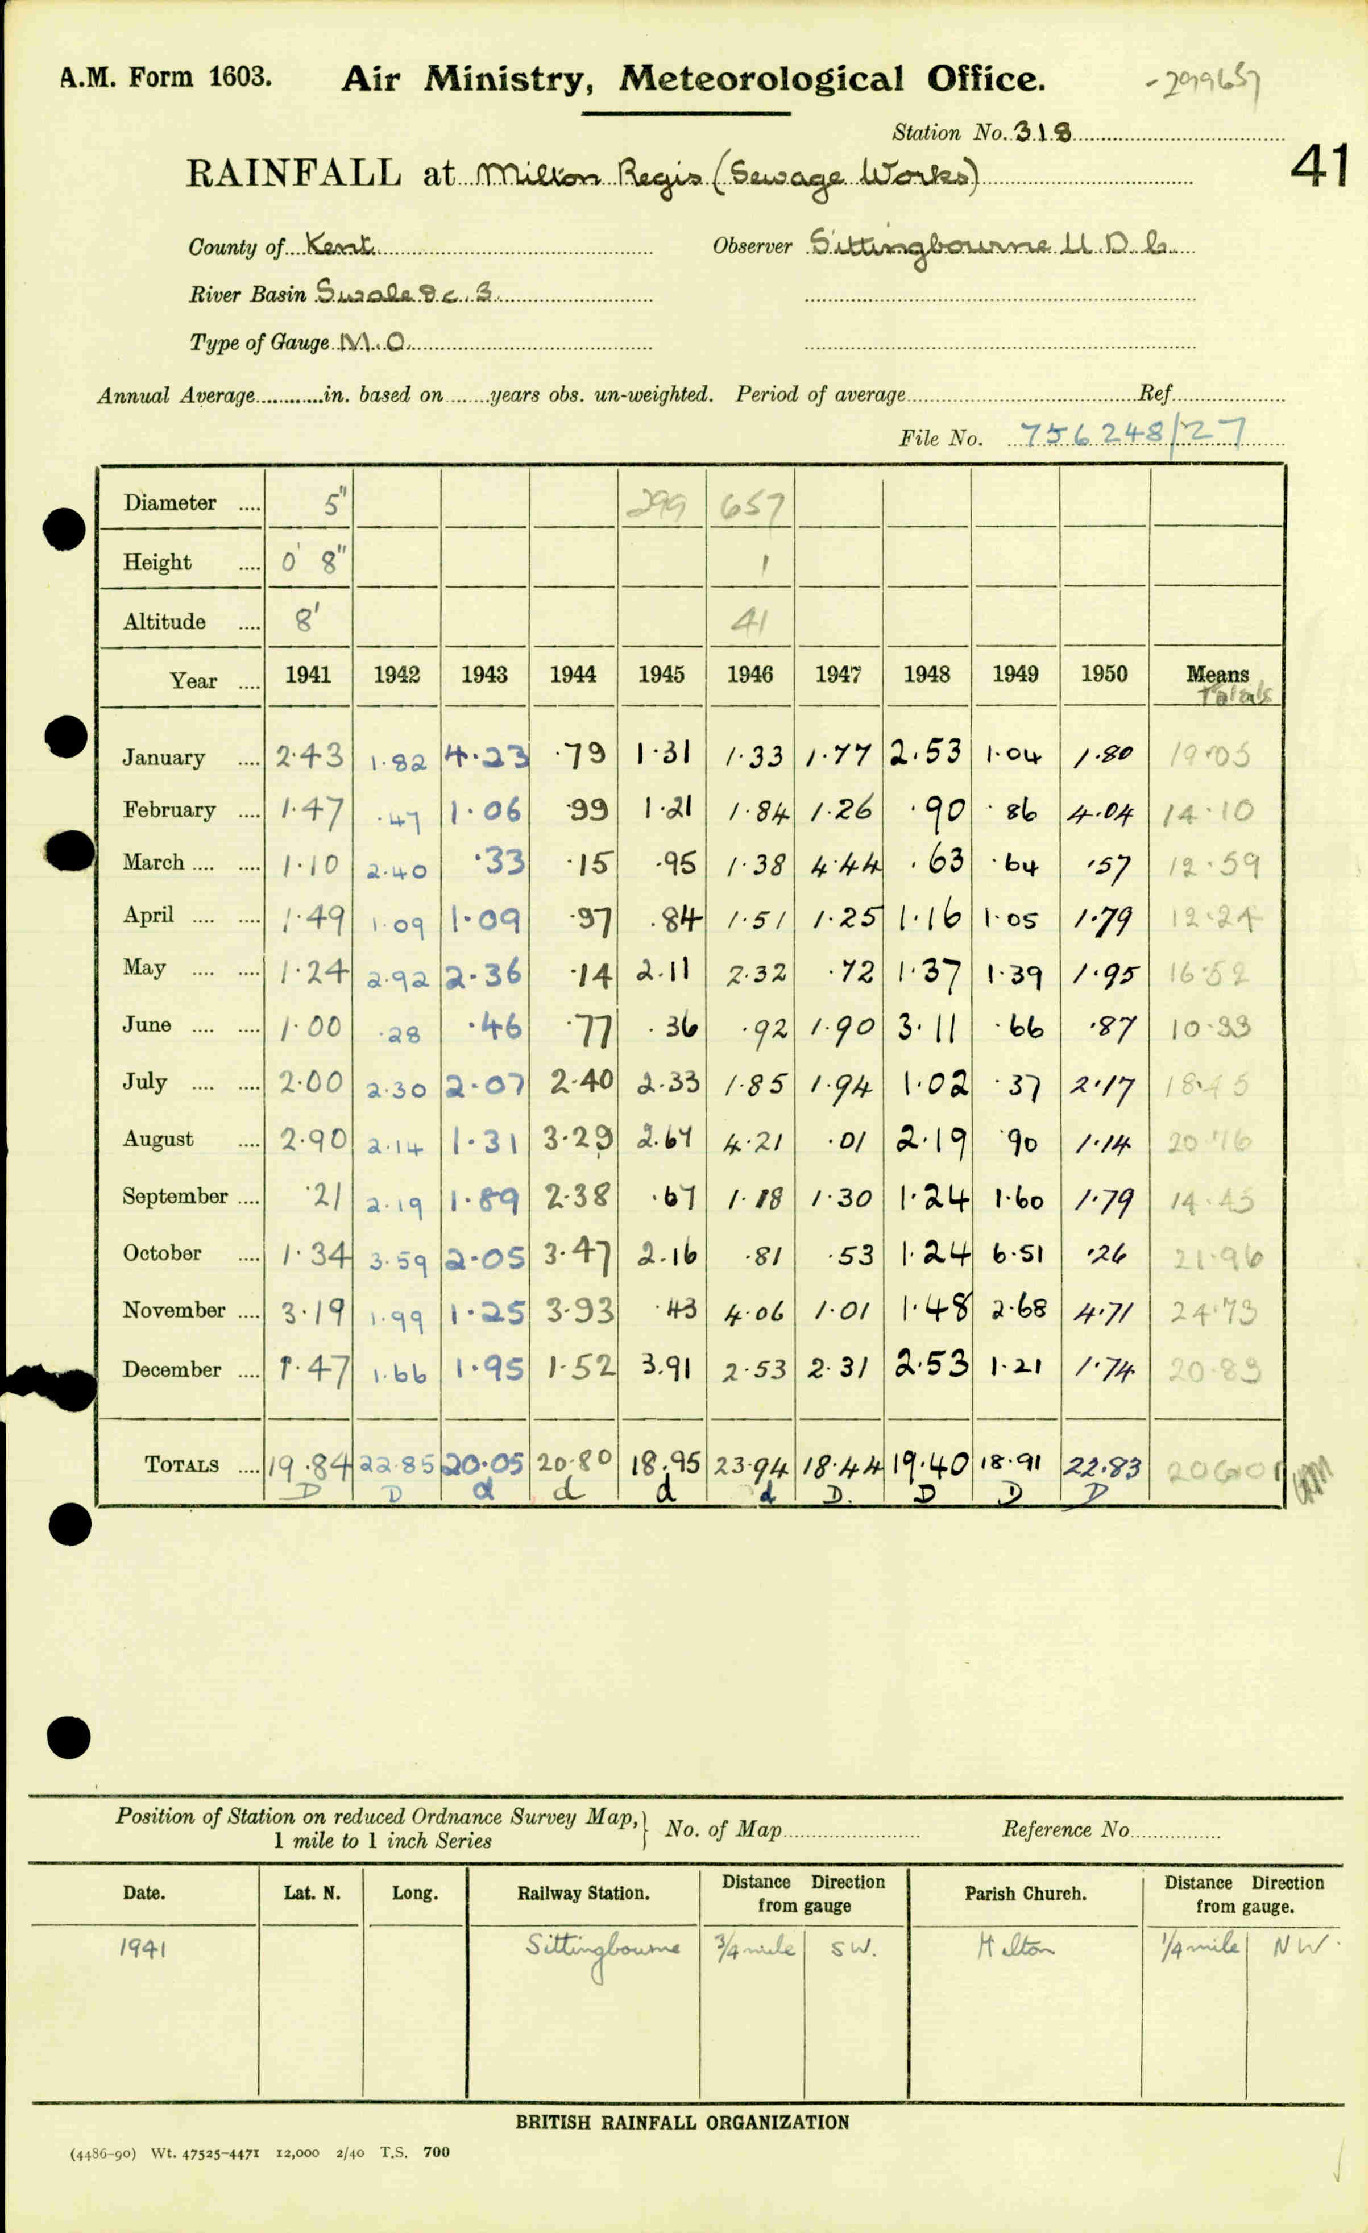 A.M. Form 1603. Air Ministry, Meteorological Office. -299657
Station No. 318
41
RAINFALL at Milton Regis (Sewage Works)
County of Kent Observer Sittingbourne U.D.C.
River Basin Swale &c. 3
Type of Gauge M.O.
Annual Average in. based on years obs. un-weighted. Period of average Ref.
File No. 756248/27
Diameter 5" 299 657
Height 0' 8" 1
Altitude 8' 41
Year 1941 1942 1943 1944 1945 1946 1947 1948 1949 1950 Means
Totals
January 2.43 1.82 4.23 .79 1.31 1.33 1.77 2.53 1.04 1.80 19.05
February 1.47 .47 1.06 .99 1.21 1.84 1.26 .90 .86 4.04 14.10
March 1.10 2.40 .33 .15 .95 1.38 4.44 .63 .64 .57 12.59
April 1.49 1.09 1.09 .97 .84 1.51 1.25 1.16 1.05 1.79 12.24
May 1.24 2.92 2.36 .14 2.11 2.32 .72 1.37 1.39 1.95 16.52
June 1.00 .28 .46 .77 .36 .92 1.90 3.11 .66 .87 10.33
July 2.00 2.30 2.07 2.40 2.33 1.85 1.94 1.02 .37 2.17 18.45
August 2.90 2.14 1.31 3.29 2.67 4.21 .01 2.19 .90 1.14 20.76
September .21 2.19 1.89 2.38 .67 1.18 1.30 1.24 1.60 1.79 14.45
October 1.34 3.59 2.05 3.47 2.16 .81 .53 1.24 6.51 .26 21.96
November 3.19 1.99 1.25 3.93 .43 4.06 1.01 1.48 2.68 4.71 24.73
December 1.47 1.66 1.95 1.52 3.91 2.53 2.31 2.53 1.21 1.74 20.83
TOTALS 19.84 22.85 20.05 20.80 18.95 23.94 18.44 19.40 18.91 22.83 206.01
D D d d d d D. D D D
Position of Station on reduced Ordnance Survey Map, No. of Map Reference No.
1 mile to 1 inch Series
Date. Lat. N. Long. Railway Station. Distance Direction from gauge Parish Church. Distance Direction from gauge.
1941 Sittingbourne 3/4 mile SW. Milton 1/4 mile NW.
BRITISH RAINFALL ORGANIZATION
(4486-90) Wt. 47525-4471 12,000 2/40 T.S. 700